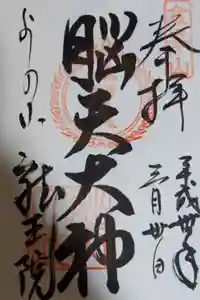 奉拝
平成卅年
三月卅日
脳天大神
よしの山
龍王院